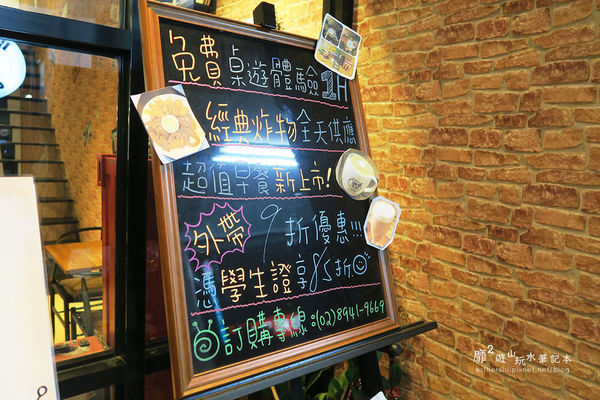 免費桌遊體驗1H
經典炸物全天供應
超值早餐新上市!
外帶9折優惠!!!
憑學生證享85折
訂購專線:(02)8941-9669
靡²遊山玩水筆記本
estherslu.pixnet.net/blog